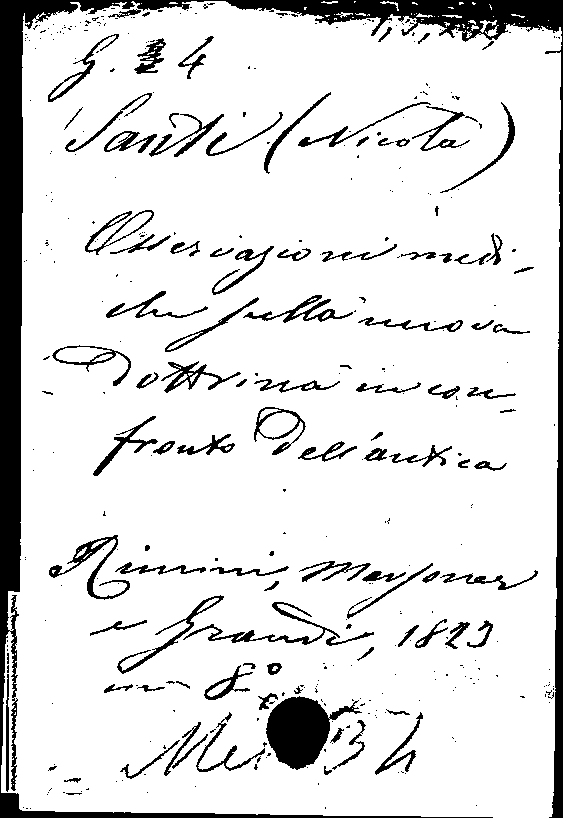 G. 4
Santi (Nicola)
Osservazioni medi-
che sulla nuova
Dottrina in con-
fronto dell'antica
Rimini, Marsoner
e Grandi, 1823
in 8°